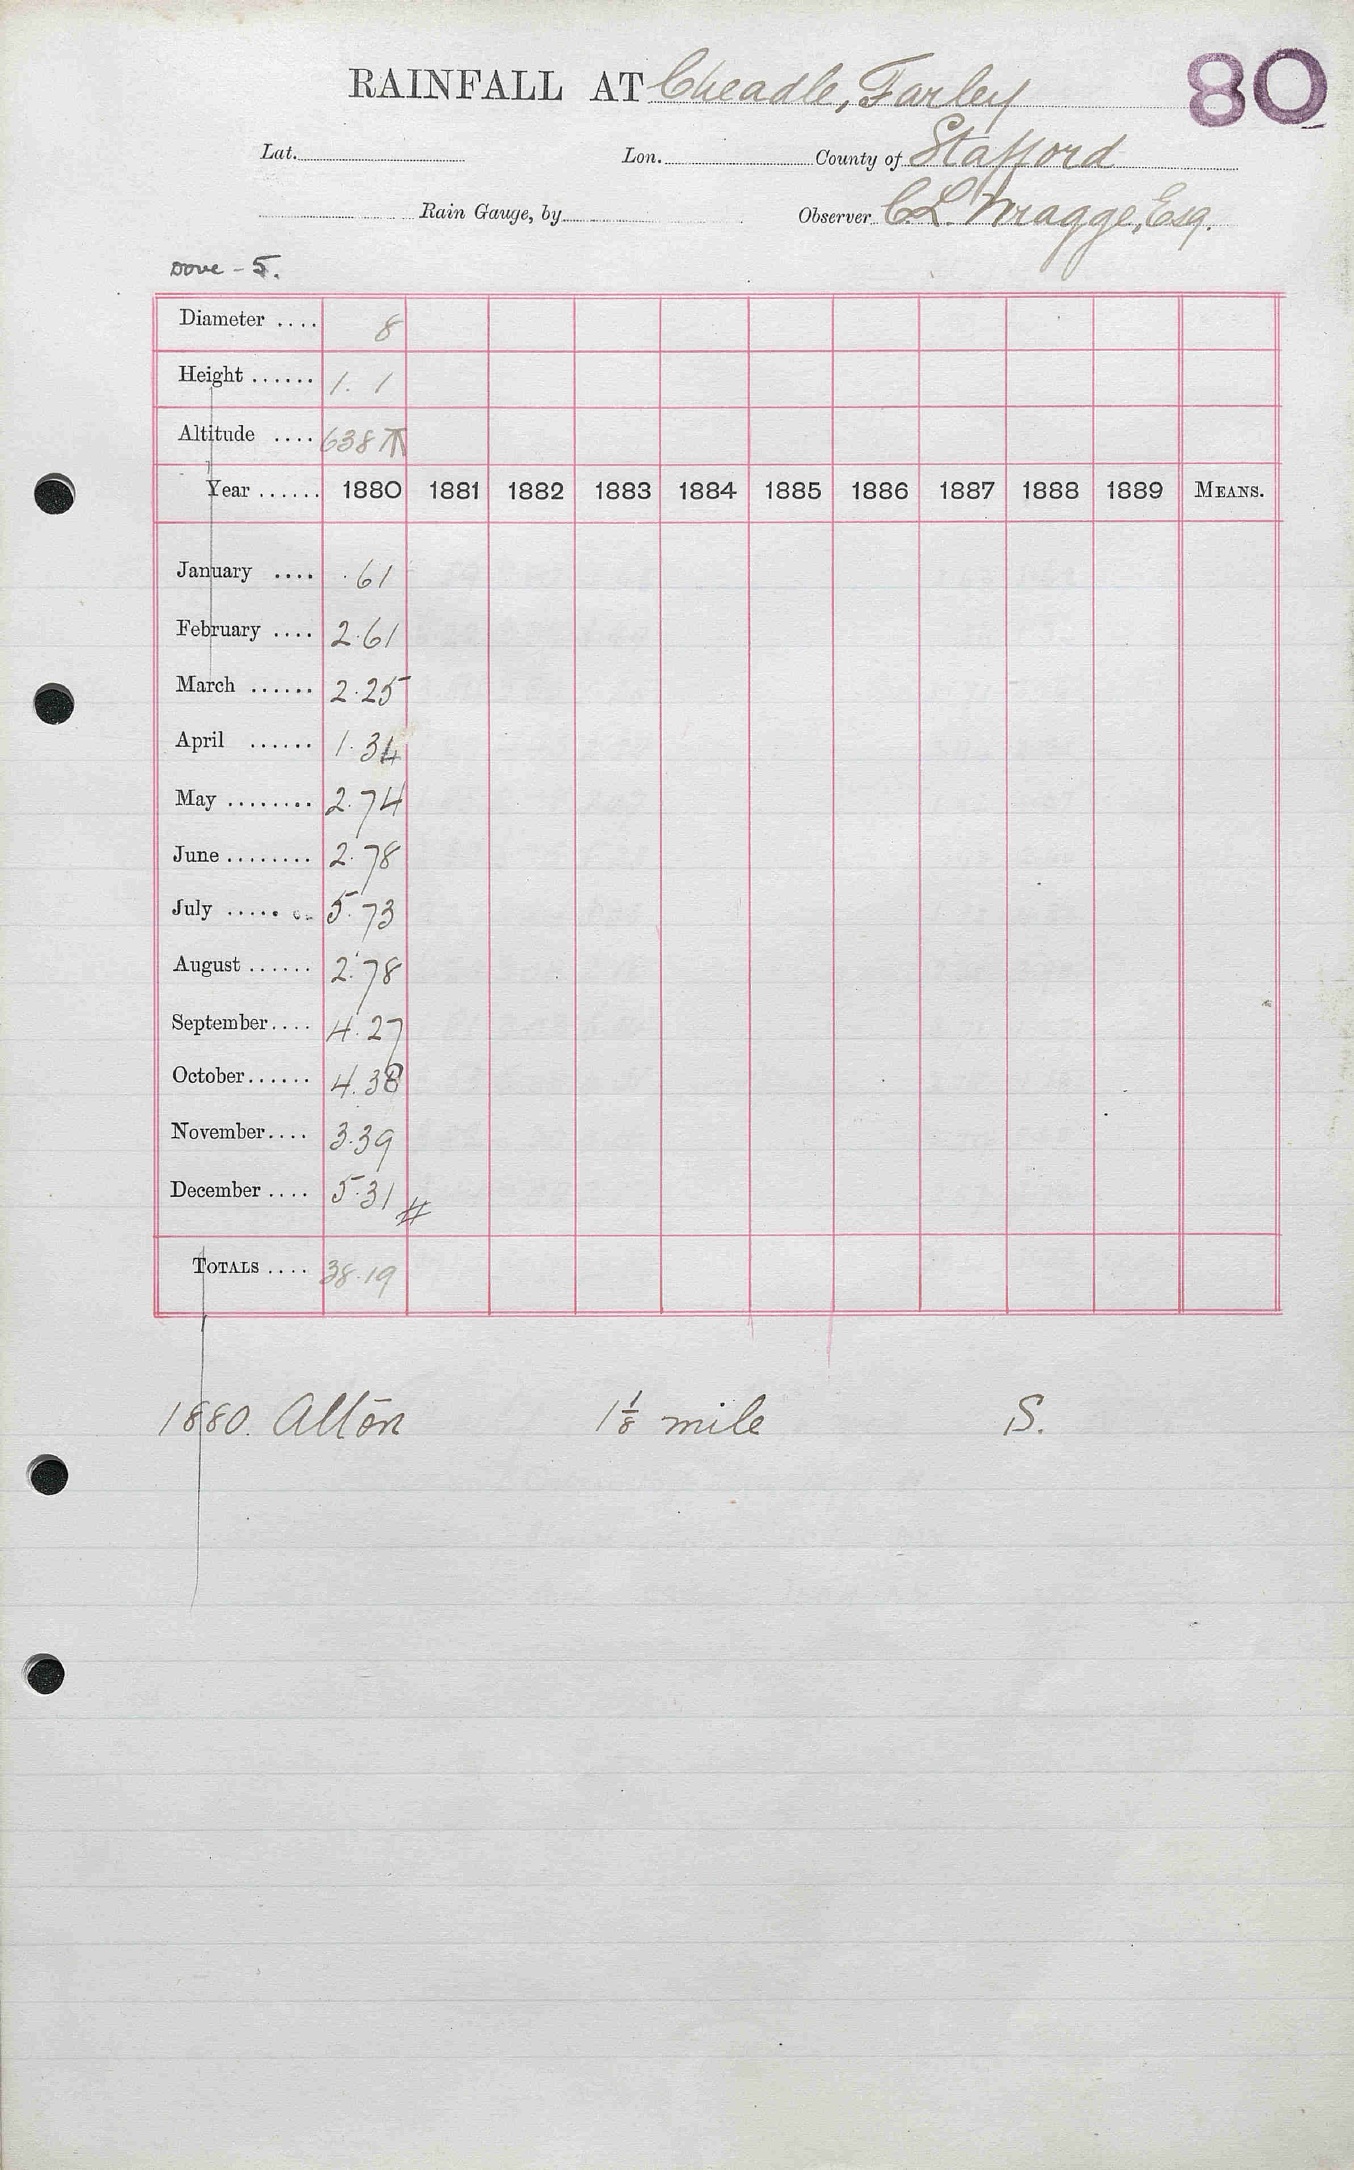 RAINFALL AT Cheadle, Farley 80
Lat. Lon. County of Stafford
Rain Gauge, by Observer C.L. Wragge, Esq.
Dove - 5.
Diameter .... 8
Height ...... 1. 1
Altitude .... 638 T
Year ...... 1880 1881 1882 1883 1884 1885 1886 1887 1888 1889 MEANS.
January .... .61
February .... 2.61
March ...... 2.25
April ...... 1.34
May ........ 2.74
June ........ 2.78
July ...... 5.73
August ...... 2.78
September.... 4.27
October...... 4.38
November.... 3.39
December .... 5.31 #
TOTALS .... 38.19
1880. Alton 1 1/8 mile S.